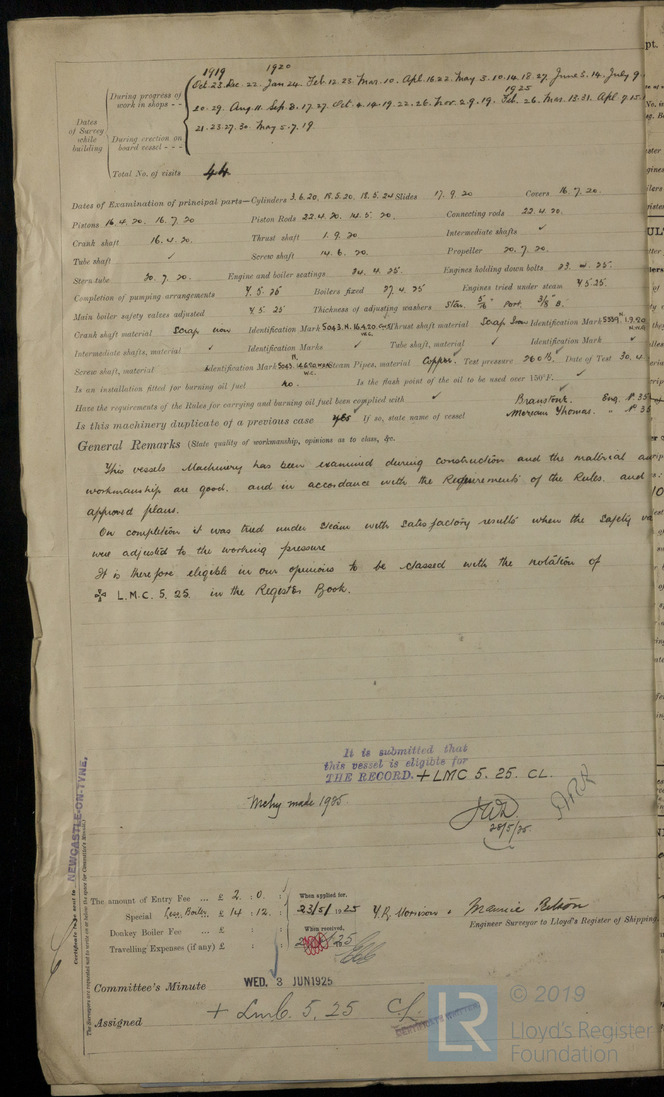 1919 1920
Oct. 23. Dec. 22. Jan 24. Feb. 12. 23. Mar. 10. Apl. 16. 22. May 3. 10. 14. 18. 27. June 3. 14. July 9
During progress of work in shops - -
1925
20. 29. Aug. 11. Sep. 8. 17. 27. Oct. 4. 14. 19. 22. 26. Nov. 2. 9. 19. Feb. 26. Mar. 13. 31. Apl. 9. 15.
Dates of Survey while building
During erection on board vessel - - -
21. 23. 27. 30. May 5. 7. 19
Total No. of visits 44
Dates of Examination of principal parts—Cylinders 3.6.20. 18.5.20. 18.5.24 Slides 17.9.20 Covers 16.7.20.
Pistons 16.4.20. 16.7.20 Piston Rods 22.4.20. 14.5.20. Connecting rods 22.4.20.
Crank shaft 16.4.20. Thrust shaft 1.9.20. Intermediate shafts ✓
Tube shaft ✓ Screw shaft 14.6.20. Propeller 20.7.20.
Stern tube 20.7.20. Engine and boiler seatings 24.4.25. Engines holding down bolts 23.4.25.
Completion of pumping arrangements 7.5.25 Boilers fixed 27.4.25 Engines tried under steam 7.5.25
Main boiler safety valves adjusted 7.5.25 Thickness of adjusting washers Star. 5/16 Port. 3/8 B.
Crank shaft material Scrap iron Identification Mark 5043.N. 16.4.20. W.C. Thrust shaft material Scrap Iron Identification Mark 1.9.20
Intermediate shafts, material ✓ Identification Marks ✓ Tube shaft, material ✓ Identification Mark ✓
Screw shaft, material Identification Mark 5043. W.C. Steam Pipes, material Copper. Test pressure 360 lb. Date of Test 30.4.
Is an installation fitted for burning oil fuel no. Is the flash point of the oil to be used over 150°F. ✓
Have the requirements of the Rules for carrying and burning oil fuel been complied with ✓ Eng. No 35
Is this machinery duplicate of a previous case yes If so, state name of vessel Thomas. " No 35
General Remarks (State quality of workmanship, opinions as to class, &c.
This vessels Machinery has been examined during construction and the material and
workmanship are good. and in accordance with the Requirements of the Rules. and
approved plans.
On completion it was tried under steam with satisfactory results when the safety va
were adjusted to the working pressure
It is therefore eligible in our opinions to be classed with the notation of
✠ L.M.C. 5. 25. in the Register Book.
It is submitted that
this vessel is eligible for
THE RECORD. + LMC 5. 25. CL.
Mchy made 1925
28/5/25
NEWCASTLE-ON-TYNE,
Certificate to be sent to
The amount of Entry Fee ... £ 2 : 0 : When applied for,
Special Less Boiler £ 14 : 12. : 23/5/1925
Engineer Surveyor to Lloyd's Register of Shipping
Donkey Boiler Fee ... £ : : When received,
Travelling Expenses (if any) £ : :
Committee's Minute WED. 3 JUN 1925
Assigned + LMC. 5. 25 CL.
LR
© 2019
Lloyd's Register
Foundation